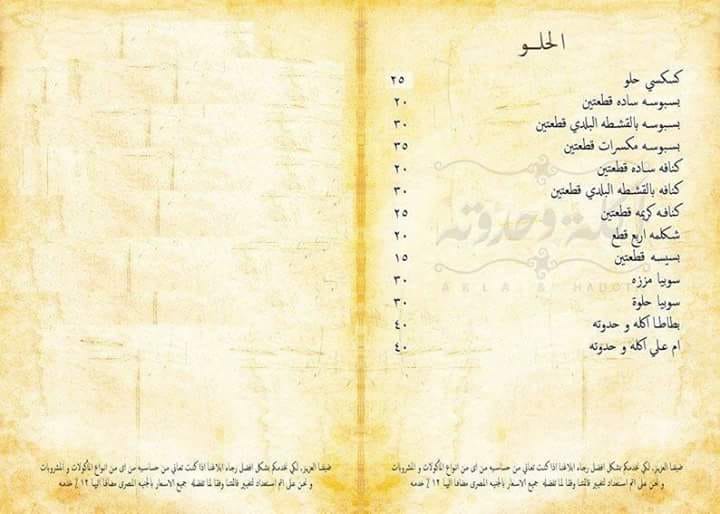 الحلو
كسكسي حلو ٢٥
بسبوسه ساده قطعتين ٢٠
بسبوسه بالقشطه البلدي قطعتين ٣٠
بسبوسه مكسرات قطعتين ٣٥
كنافه ساده قطعتين ٢٠
كنافه بالقشطه البلدي قطعتين ٣٠
كنافه كريمه قطعتين ٢٥
شكلمه اربع قطع ٢٠
بسيسه قطعتين ١٥
سوبيا مززه ٣٠
سوبيا حلوة ٣٠
بطاطا اكله و حدوته ٤٠
ام علي اكله و حدوته ٤٠
أكلة وحدوته
AKLA & HADOTA
ضيفنا العزيز، لكي نخدمكم بشكل افضل رجاء ابلاغنا اذا كنت تعاني من حساسيه من اى من انواع المأكولات و المشروبات
و نحن على اتم استعداد لتحضير قائمتنا وفقا لما تفضله جميع الاسعار بالجنيه المصرى مضافا اليها ١٢ ٪ خدمه
ضيفنا العزيز، لكي نخدمكم بشكل افضل رجاء ابلاغنا اذا كنت تعاني من حساسيه من اى من انواع المأكولات و المشروبات
و نحن على اتم استعداد لتحضير قائمتنا وفقا لما تفضله جميع الاسعار بالجنيه المصرى مضافا اليها ١٢ ٪ خدمه